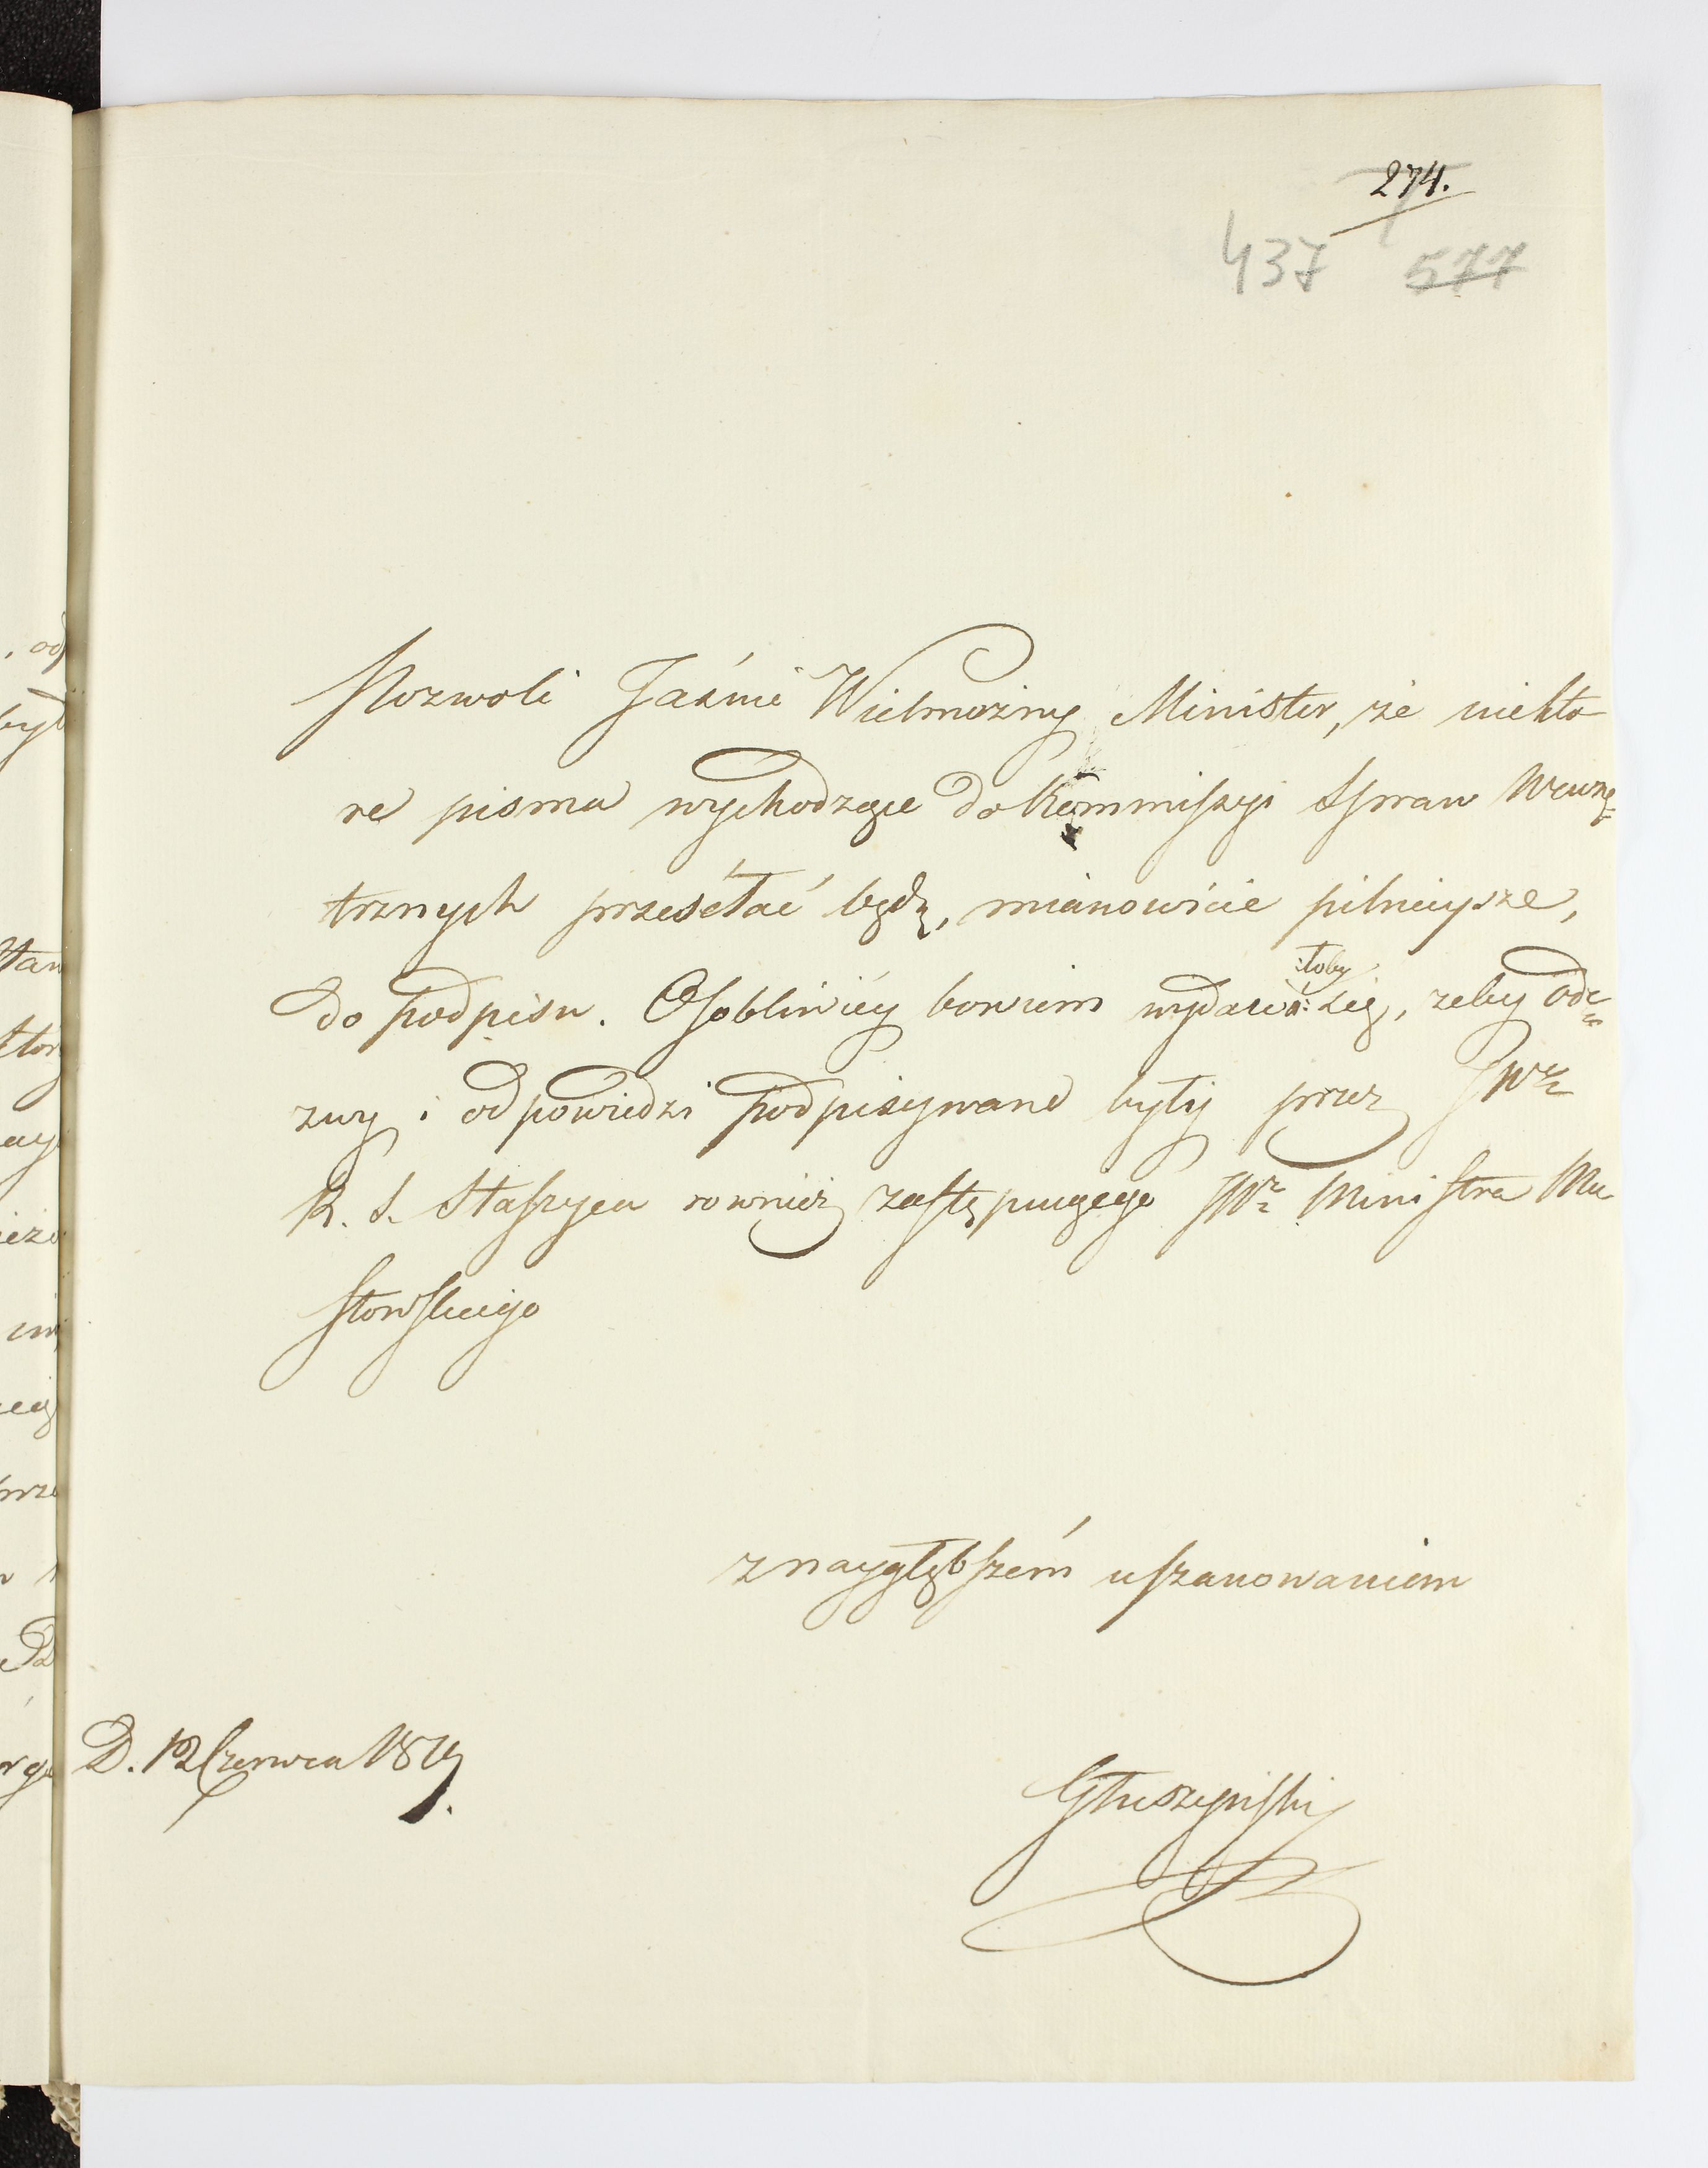 274.
437 577
Pozwoli Jaśnie Wielmożny Minister, że niekto
re pisma wychodzące do Kommiſzyi Spraw Wewnę=
trznych przesełać będę, mianowicie pilnieysze,
do podpisu. Osobliwiéy bowiem wydawa:łoby: się, żeby ode=
zwy i odpowiedzi podpisywane były przez JWo
R. S. Staſzyca rownież zaſtępuiącego JWo Miniſtra Mo
ſtowſkiego
z naygłębſzém uſzanowaniem
D. 12 Czerwca 1819.
Głuszyńſki